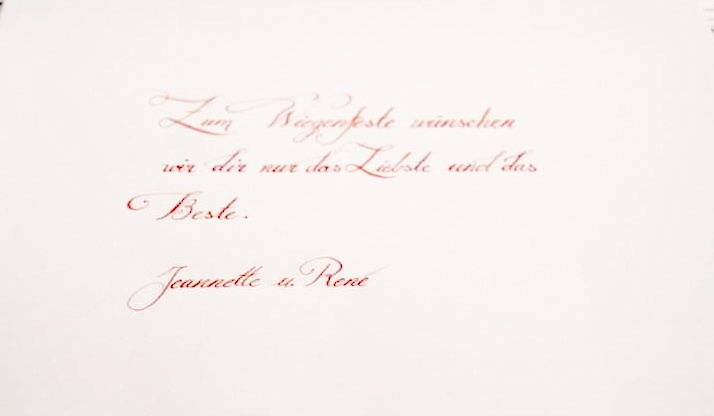 Zum Wiegenfeste wünschen
wir dir nur das Liebste und das
Beste.
Jeannette u. René